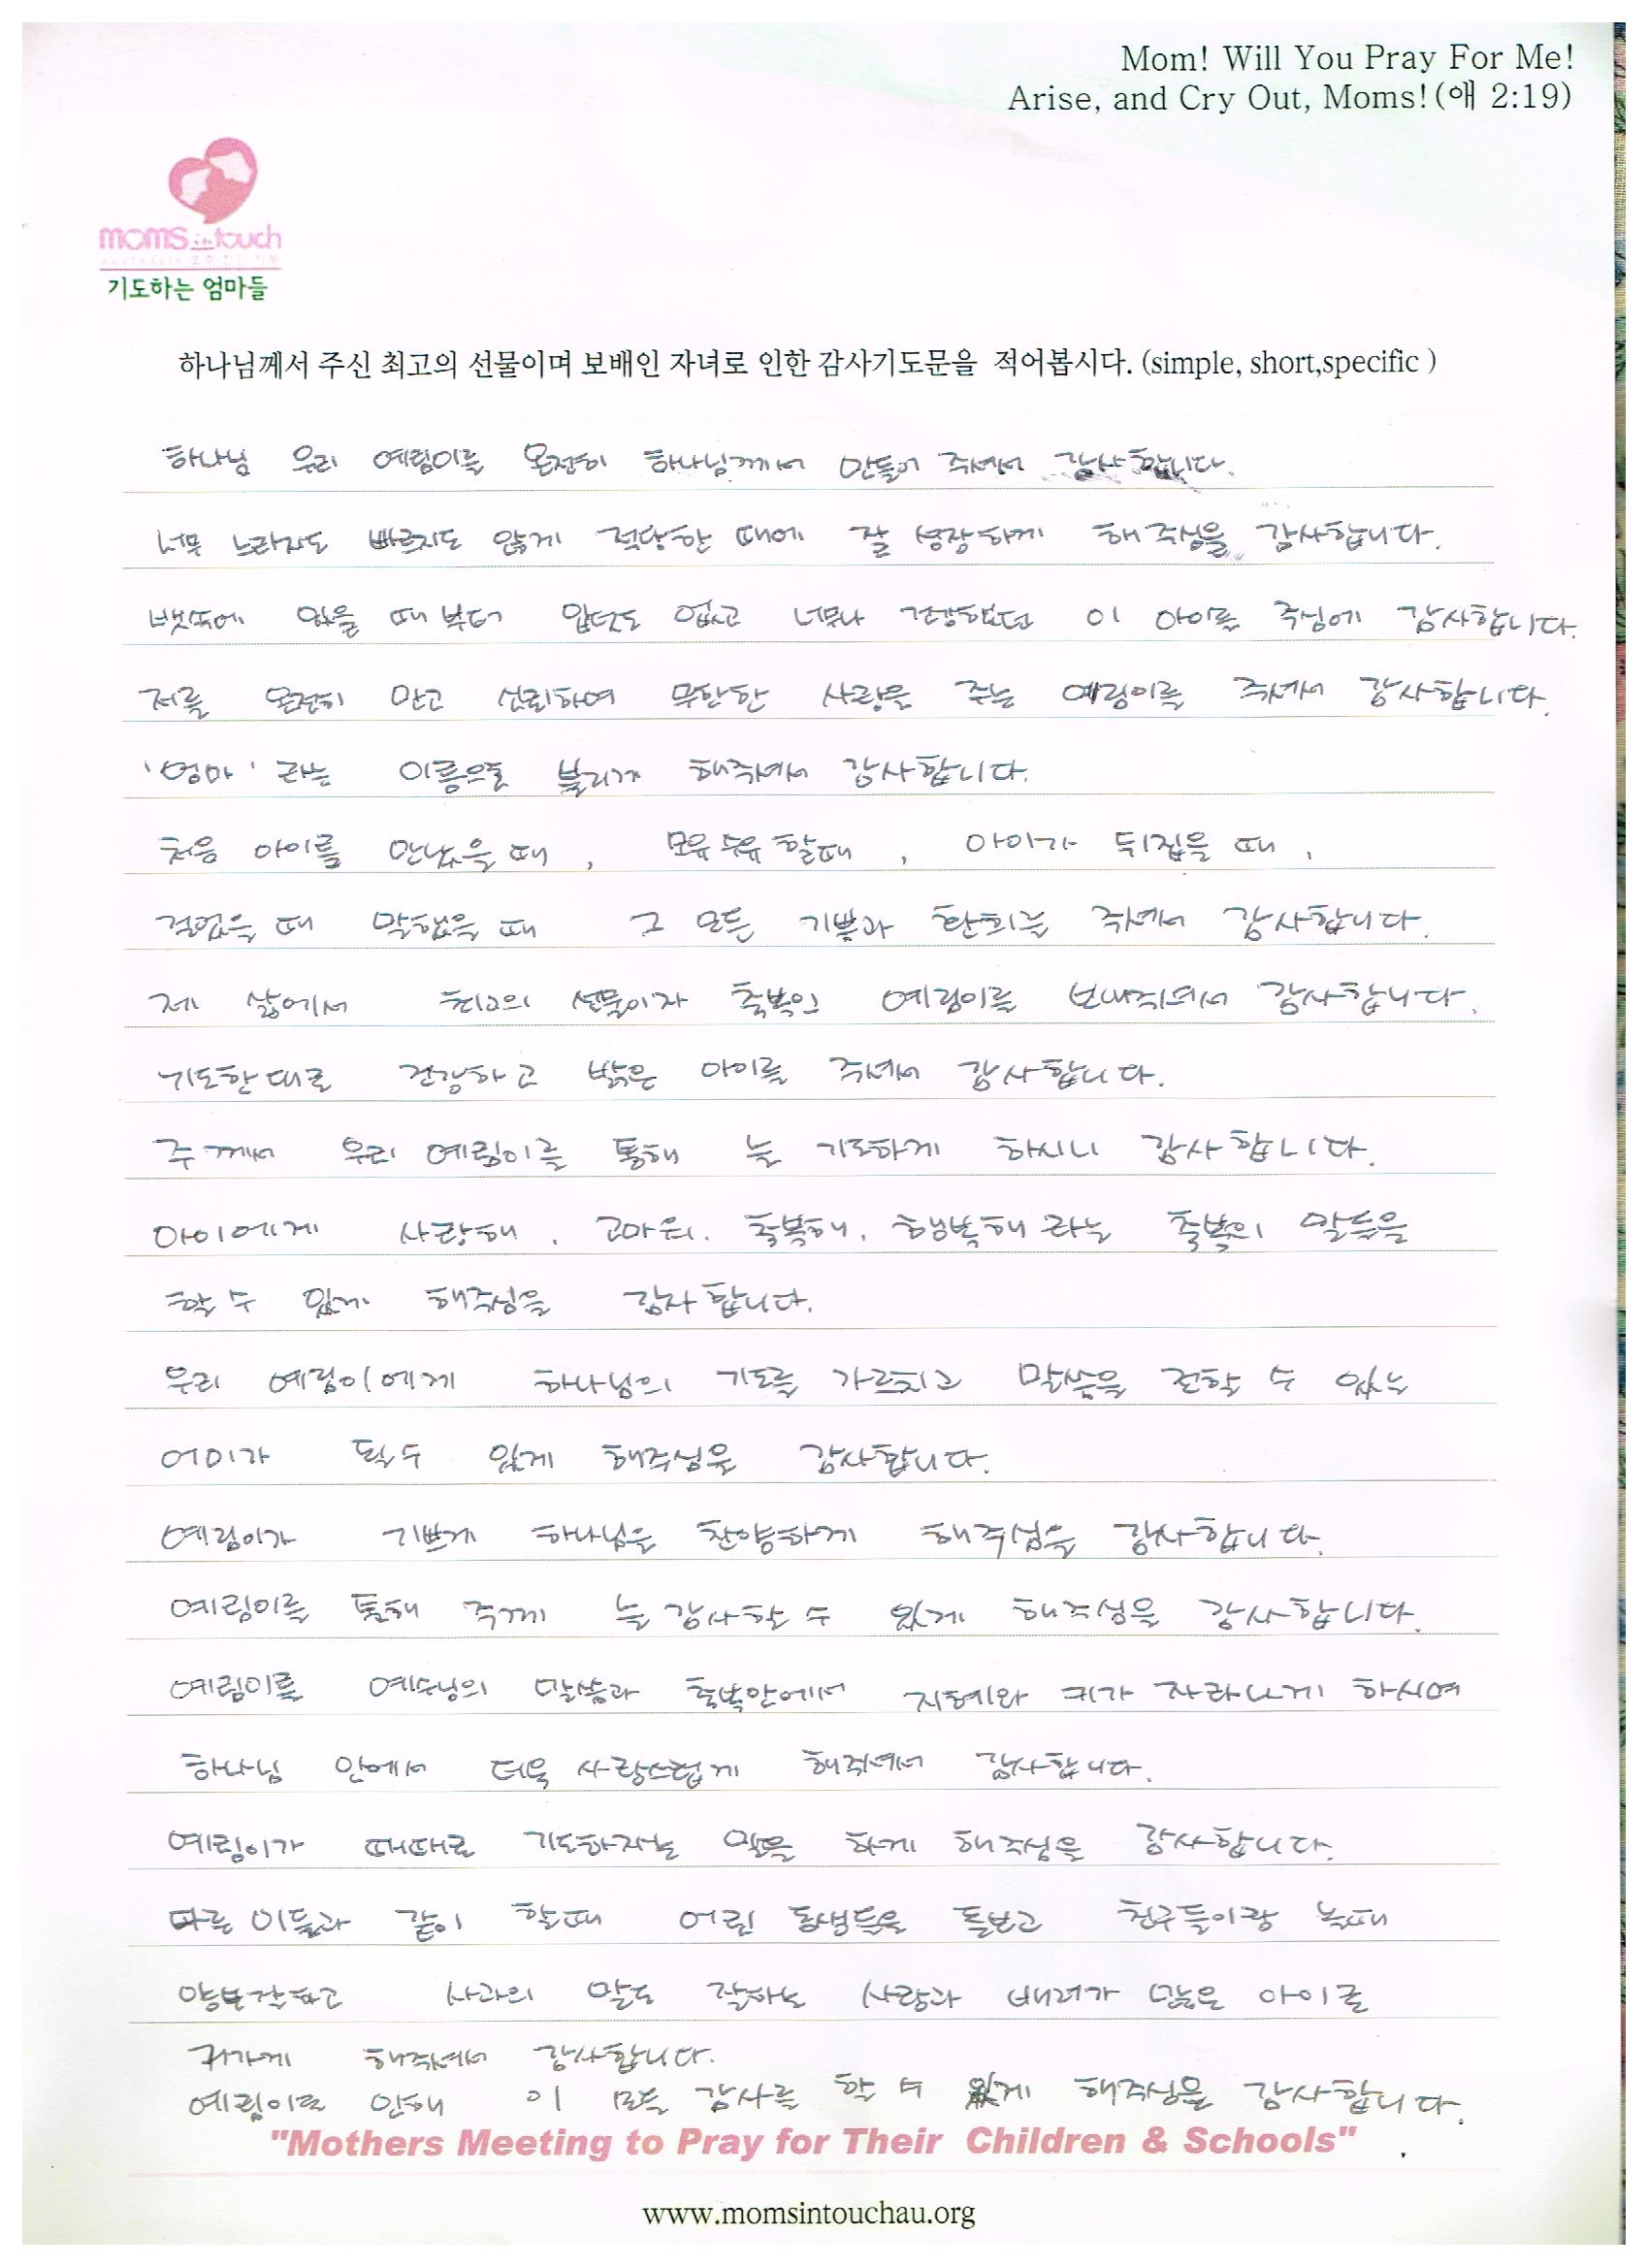 Mom! Will You Pray For Me!
Arise, and Cry Out, Moms!(애 2:19)
moms in touch
기도하는 엄마들
하나님께서 주신 최고의 선물이며 보배인 자녀로 인한 감사기도문을 적어봅시다. (simple, short,specific )
하나님 우리 예림이를 온전히 하나님께서 만들어 주셔서 감사합니다.
너무 느리지도 빠르지도 않게 적당한 때에 잘 성장하게 해주심을 감사합니다.
뱃속에 있을 때부터 입덧도 없고 너무나 건강했던 이 아이를 주심에 감사합니다.
저를 온전히 안고 신뢰하여 무한한 사랑을 주는 예림이를 주셔서 감사합니다.
'엄마' 라는 이름으로 불리게 해주셔서 감사합니다.
처음 아이를 만났을 때, 모유수유 할때, 아이가 뒤집을 때,
걸었을 때 말했을 때 그 모든 기쁨과 환희를 주셔서 감사합니다.
제 삶에서 최고의 선물이자 축복인 예림이를 보내주셔서 감사합니다.
기도한대로 건강하고 밝은 아이를 주셔서 감사합니다.
주께서 우리 예림이를 통해 늘 기도하게 하시니 감사합니다.
아이에게 사랑해, 고마워, 축복해, 행복해 라는 축복의 말들을
할 수 있게 해주심을 감사합니다.
우리 예림이에게 하나님의 기도를 가르치고 말씀을 전할 수 있는
어미가 될수 있게 해주심을 감사합니다.
예림이가 기쁘게 하나님을 찬양하게 해주심을 감사합니다.
예림이를 통해 주께 늘 감사할 수 있게 해주심을 감사합니다.
예림이를 예수님의 말씀과 축복안에서 지혜와 키가 자라나게 하시여
하나님 안에서 더욱 사랑스럽게 해주셔서 감사합니다.
예림이가 때때로 기도하자는 말을 하게 해주심을 감사합니다.
다른 이들과 같이 할때 어린 동생들을 돌보고 친구들이랑 놀때
양보잘하고 사과의 말도 잘하는 사랑과 배려가 많은 아이로
커가게 해주셔서 감사합니다.
예림이로 인해 이 모든 감사를 할 수 있게 해주심을 감사합니다.
"Mothers Meeting to Pray for Their Children & Schools"
www.momsintouchau.org